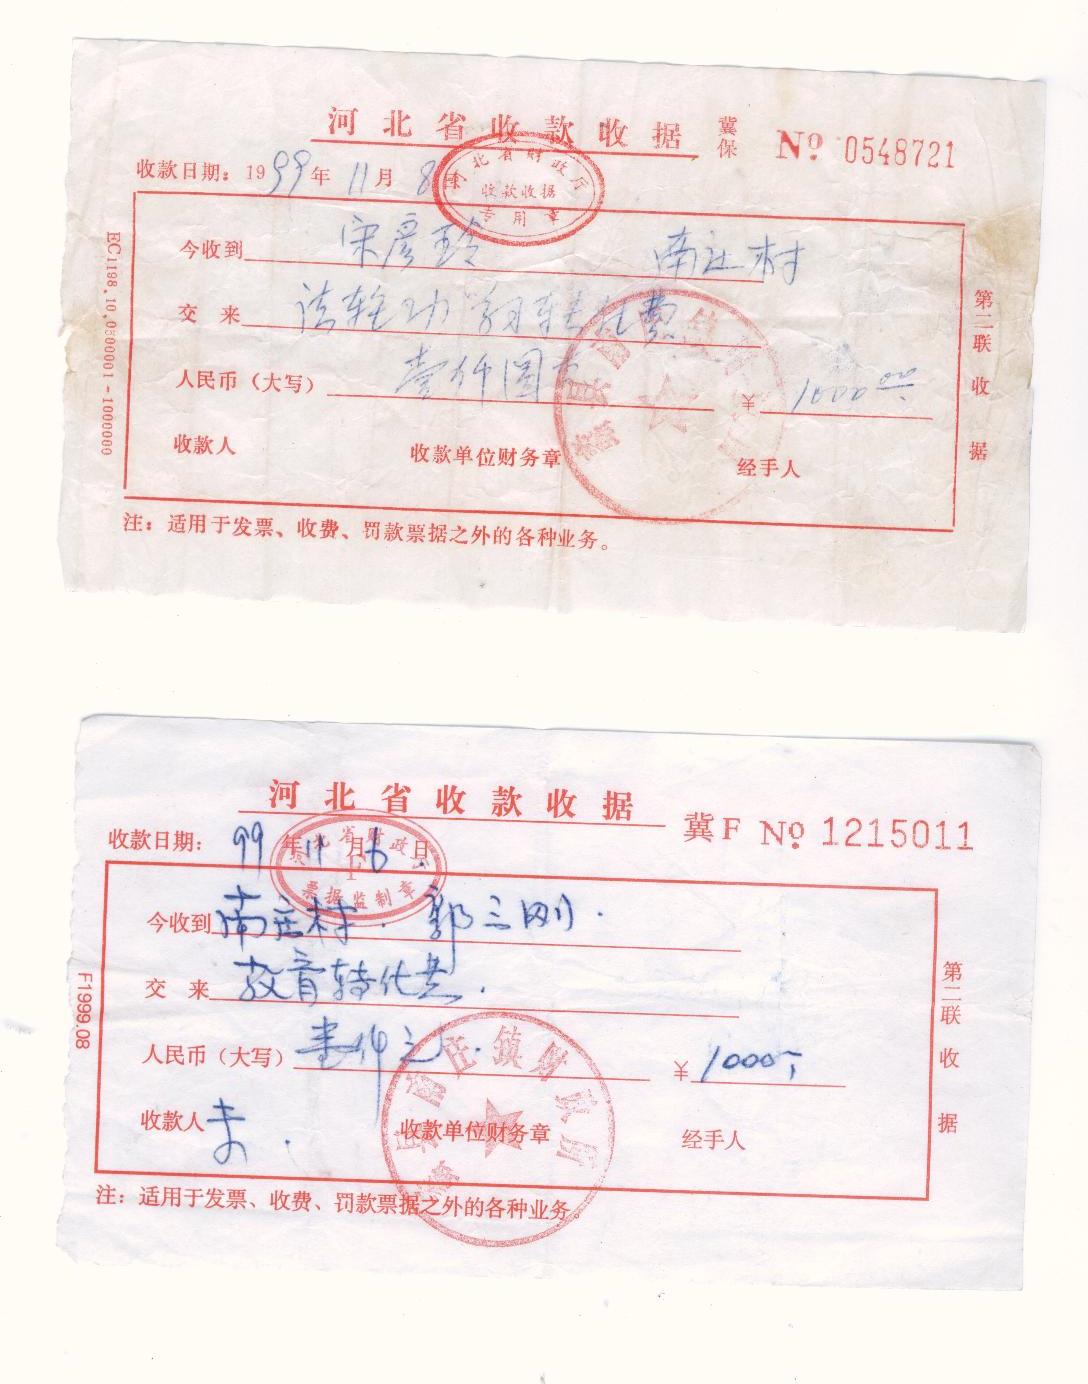 河北省收款收据 冀保 № 0548721
收款日期：1999年11月8日
河北省财政厅
收款收据
专用章
今收到 宋彦玲 南庄村
交 来 法轮功学习转化费
人民币（大写） 壹仟圆 ¥ 1000.00
收款人 收款单位财务章 经手人
注：适用于发票、收费、罚款票据之外的各种业务。
EC1198.10.0500001-1000000
第二联 收据
河北省收款收据 冀F № 1215011
收款日期：99年11月6日
河北省财政厅
票据监制章
今收到 南庄村 郭三刚
交 来 教育转化费
人民币（大写） 壹仟元 ¥ 1000
收款人 收款单位财务章 经手人
南庄镇财政所
注：适用于发票、收费、罚款票据之外的各种业务。
F1999.08
第二联 收据